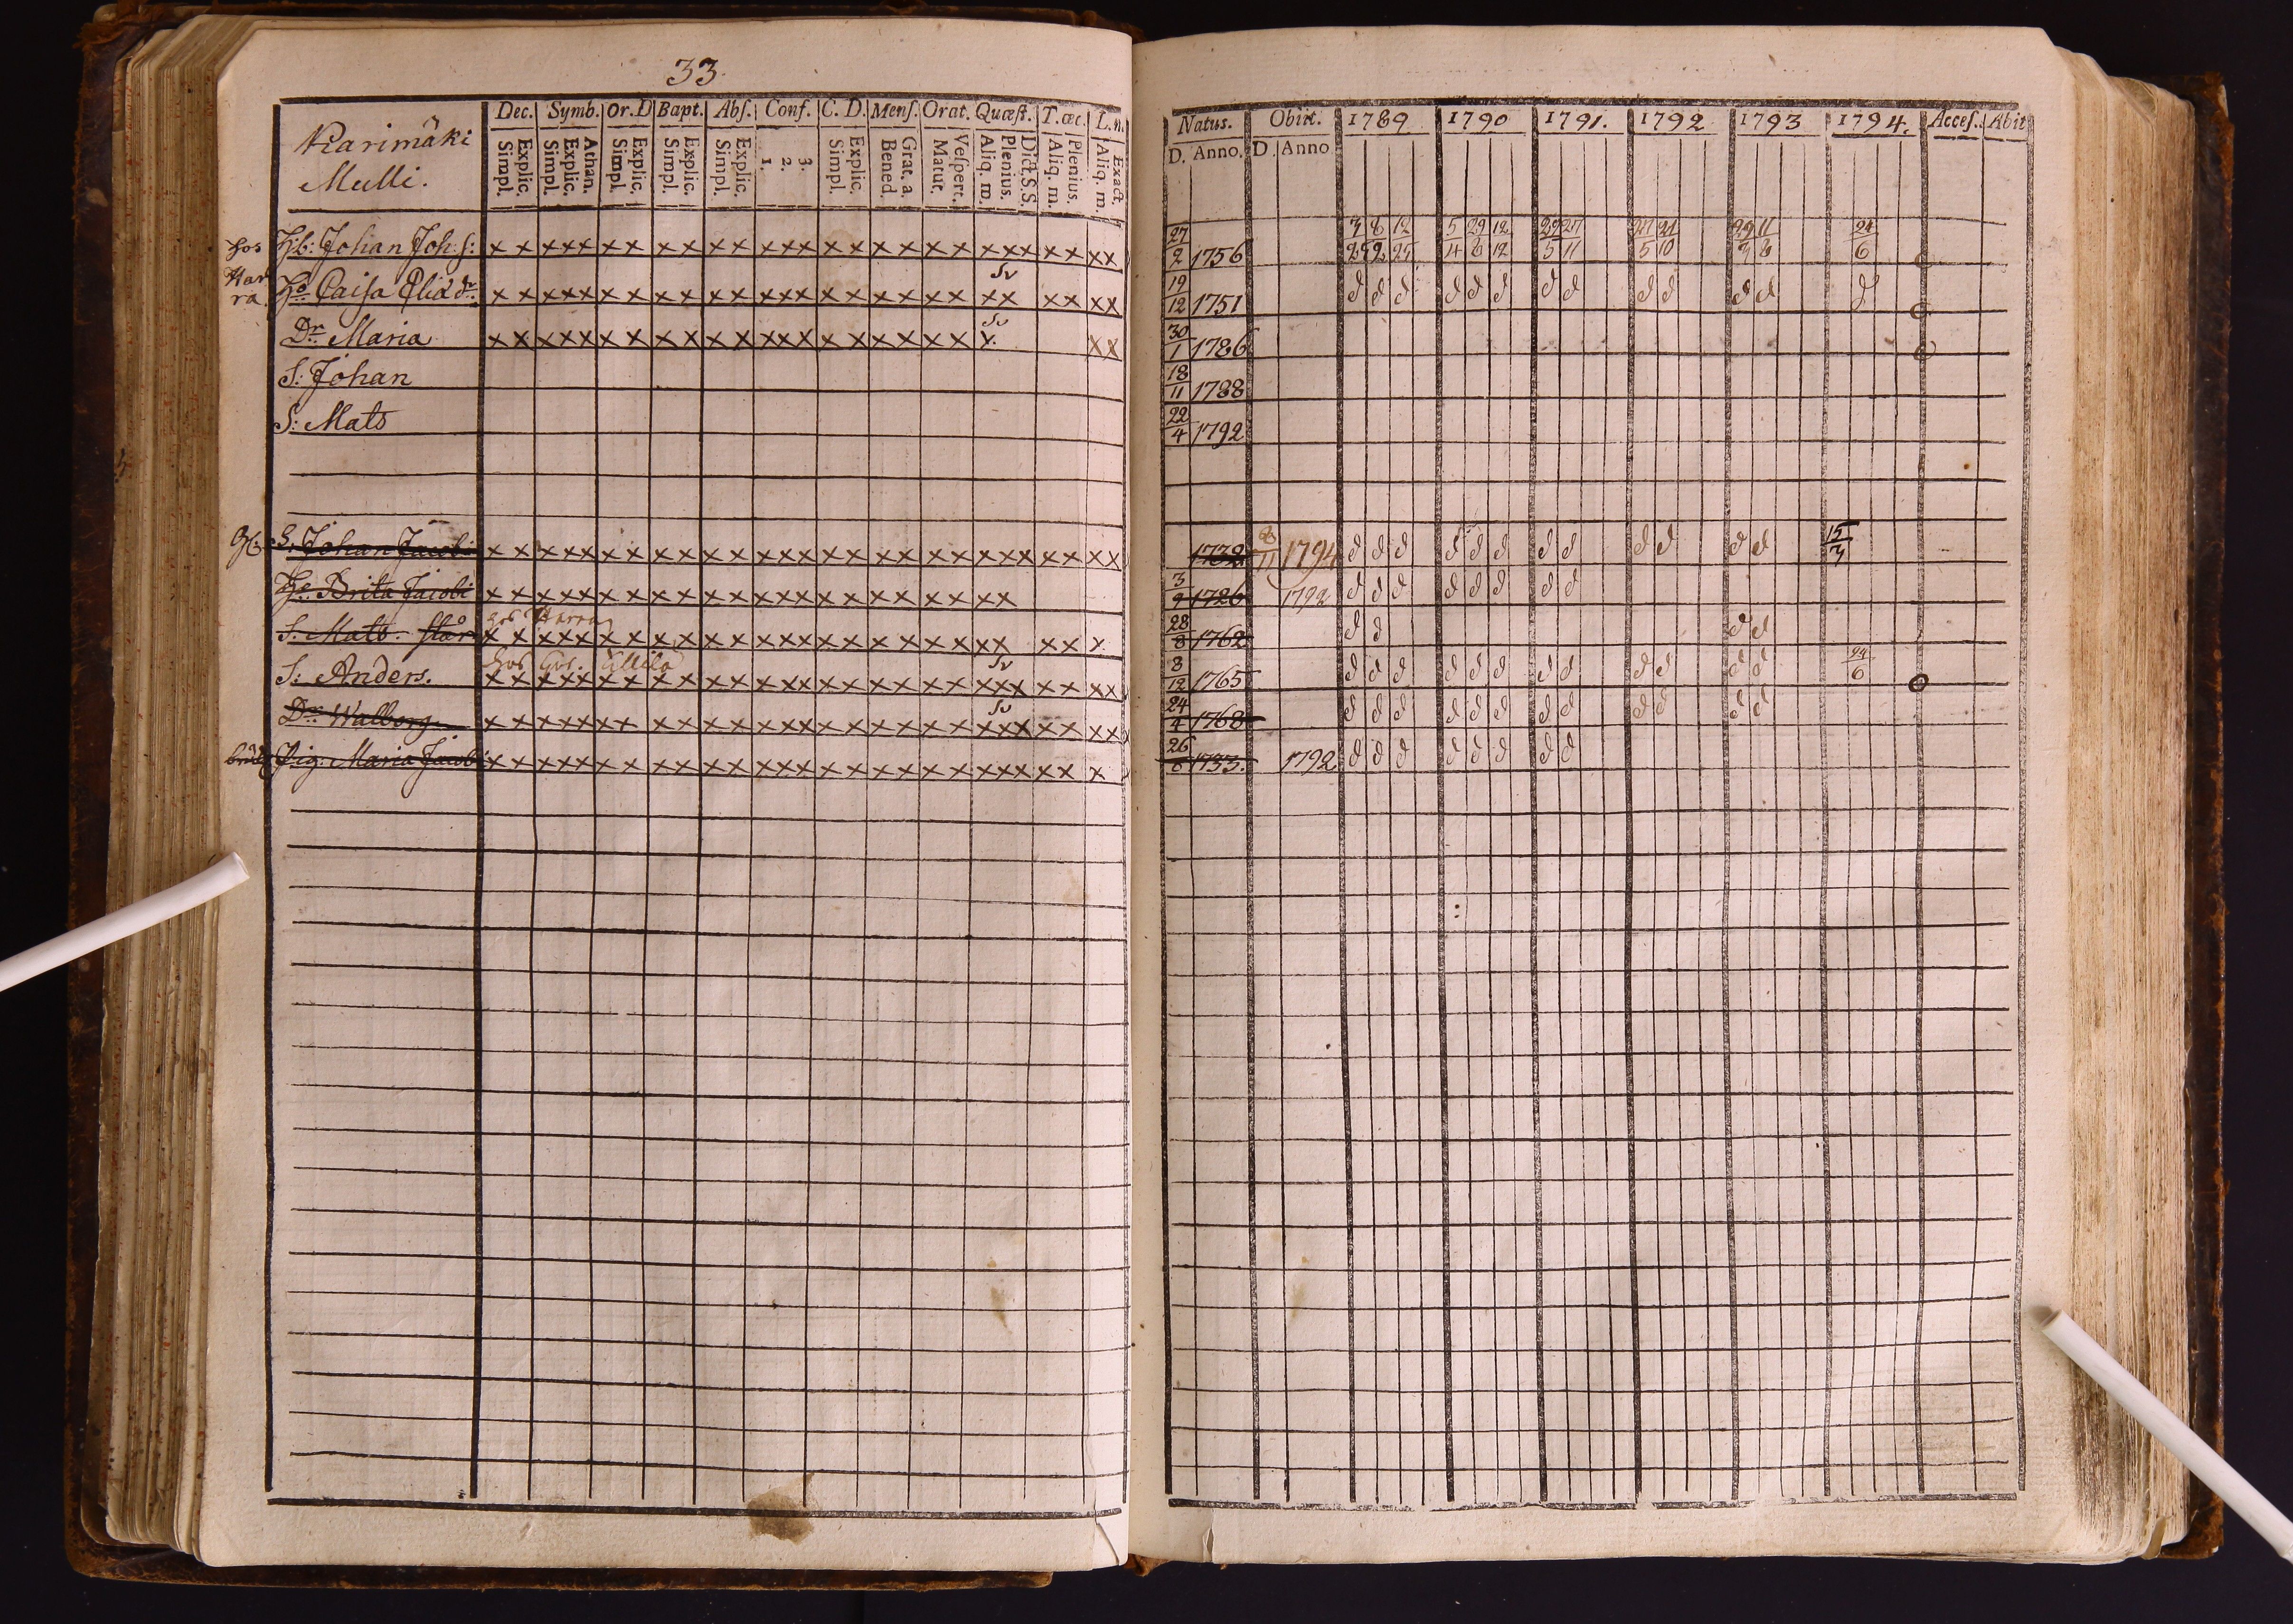 33
Karimäki
Mulli.
Dec. Symb. Or. D Bapt. Abſ. Conf. C. D. Menſ. Orat. Quæſt. T. œc. L. n.
Explic. Simpl. Athan. Explic. Simpl. Explic. Simpl. Explic. Simpl. Explic. Simpl. 3. 2. 1. Explic. Simpl. Grat. a. Bened. Veſpert. Matut. Dict. S. S. Plenius. Aliq. m. Plenius. Aliq. m. Exact. Aliq. m.
hos Hb: Johan Joh: s: x x x x x x x x x x x x x x x x x x x x x x x x x x x x
Har
ra Ho Caisa Eliä dr. x x x x x x x x x x x x x x x x x x x x x x x x x x x
Dr Maria x x x x x x x x x x x x x x x x x x x x x x x
S: Johan
S: Mats
S: Johan Jacobi x x x x x x x x x x x x x x x x x x x x x x x x x x x x
Brita Jacobi x x x x x x x x x x x x x x x x x x x x x x x
hos Harra
S. Mats x x x x x x x x x x x x x x x x x x x x x x x x x x
hos
S: Anders. x x x x x x x x x x x x x x x x x x x x x x x x x x x x
Dr Walborg x x x x x x x x x x x x x x x x x x x x x x x x x x x x
Pig: Maria Jacobi x x x x x x x x x x x x x x x x x x x x x x x x x x x
Natus. Obiit. 1789 1790 1791. 1792 1793 1794. Acceſ. Abit
D. Anno. D. Anno
27/2 1756 5/4 29/8 12/12 27/5 21/10 24/6
19/12 1751
30/1 1786
18/11 1788
22/4 1792
1738 8/11 1794 15/3
3/9 1726 1792
28/8 1762
8/12 1765 24/6
24/4 1768
26/6 1733. 1792